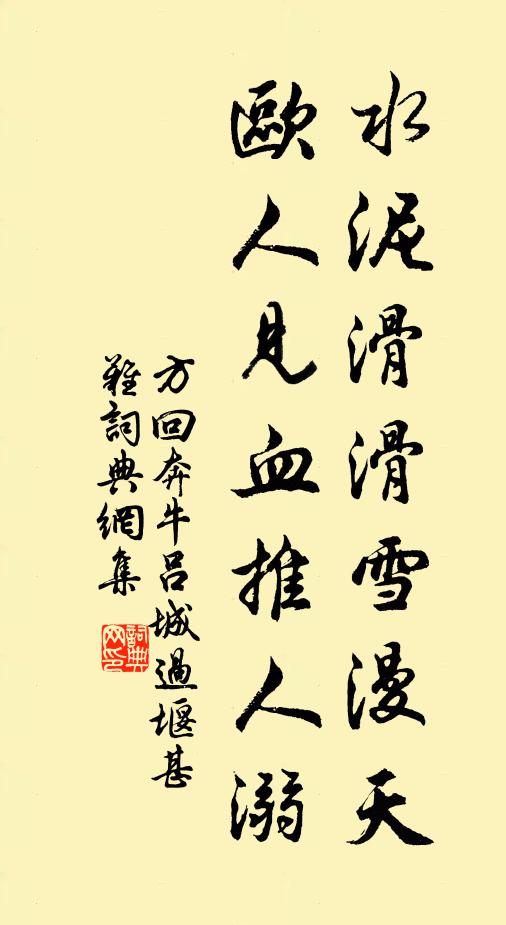 水泥滑滑雪漫天
歐人見血推人溺
方回奔牛呂城過堰甚
難詞典網集
詞典
网印